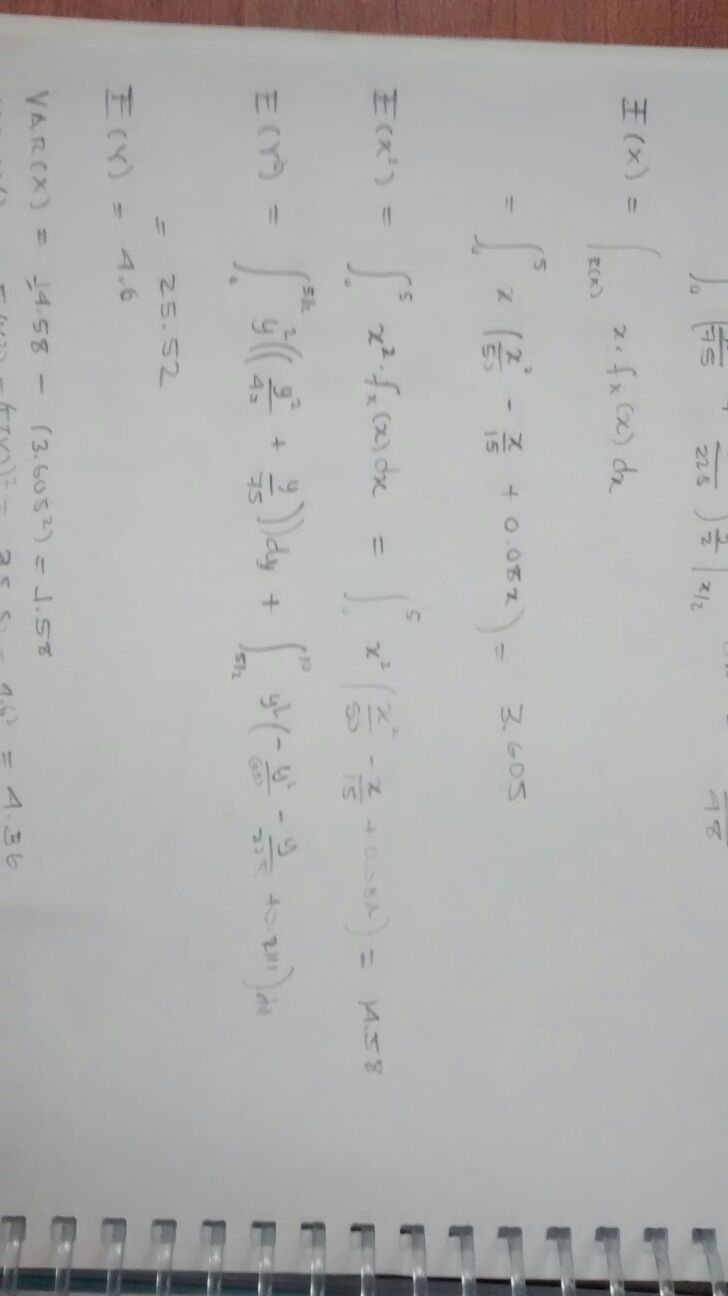 E(x) = ∫_{R(x)} x · f_x(x) dx
= ∫_0^5 x (x²/50 − x/15 + 0.08x) = 3.605
E(x²) = ∫_0^5 x² · f_x(x) dx = ∫_0^5 x² (x²/50 − x/15 + 0.08x) = 14.58
E(Y²) = ∫_0^{5/2} y² ((y²/40 + y/75)) dy + ∫_{5/2}^{10} y² (− y²/600 − y/225 + 0.2111) dy
= 25.52
E(Y) = 4.6
VAR(X) = 14.58 − (3.605²) = 1.58
= 4.36